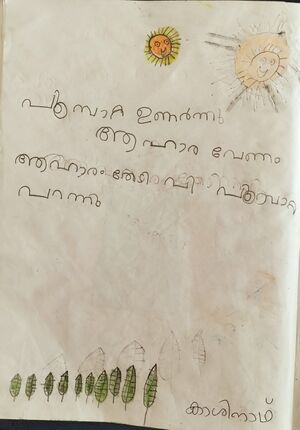 പൂമ്പാറ്റ ഉണർന്നു
ആഹാര വേണം
ആഹാരം തേടി പൂമ്പാറ്റ
പറന്നു
കാശിനാഥ്